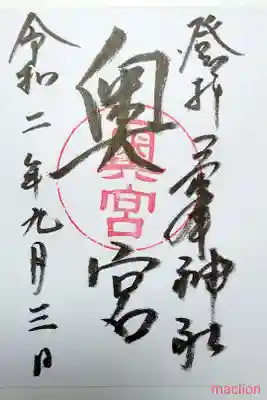 登拝 峯神社
奥宮
奥宮
令和二年九月三日
maclion